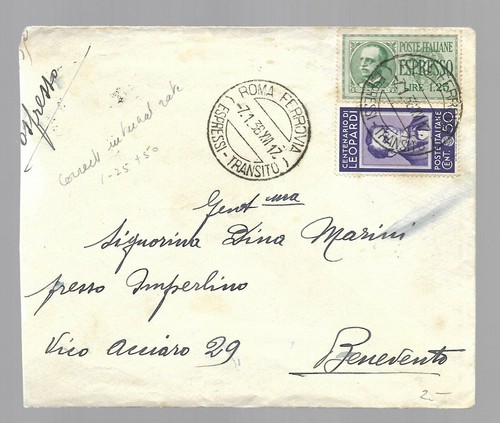 espresso
Correct internal rate
1-25 + 50
ROMA FERROVIA
7.1.38.XVI 17
(ESPRESSI-TRANSITO)
POSTE ITALIANE
ESPRESSO
LIRE 1.25
CENTENARIO DI
LEOPARDI
POSTE ITALIANE
CENT. 50
Gent.ma
Signorina Dina Marini
presso Imperlino
Vico Acciaro 29
Benevento
2-